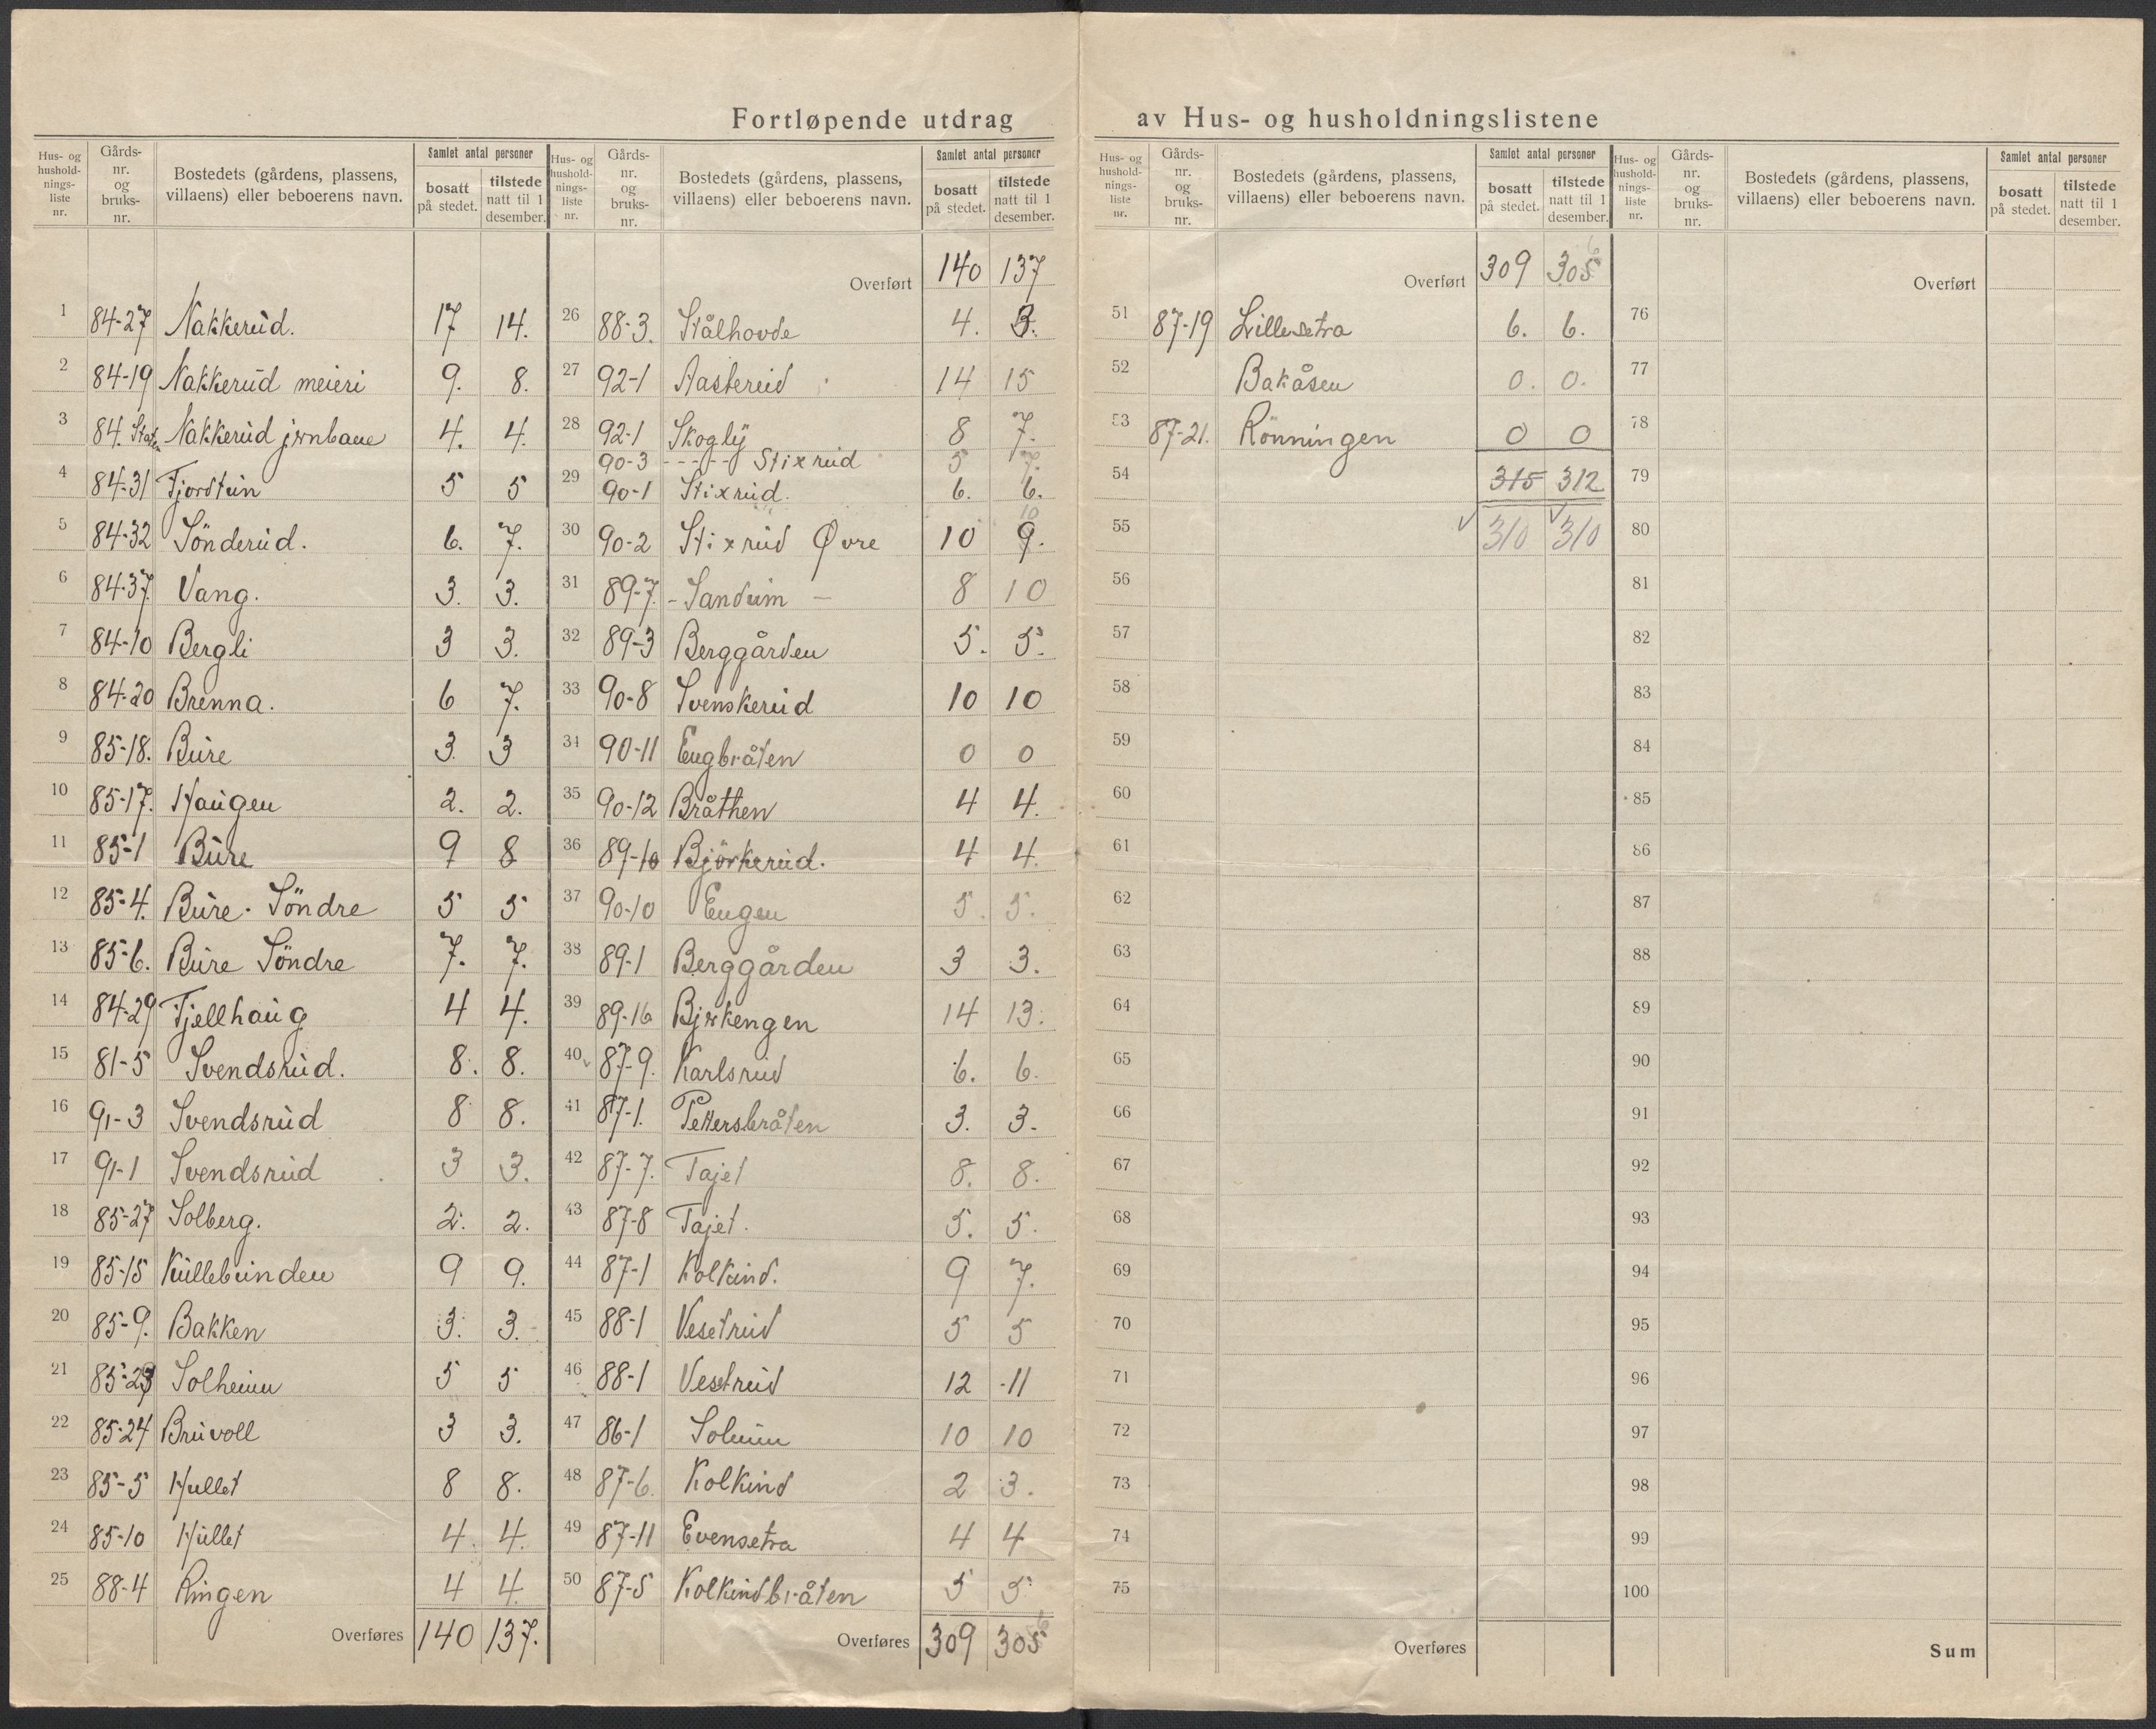 Fortløpende utdrag av Hus- og husholdningslistene
Hus- og hushold- nings- liste nr. | Gårds- nr. og bruks- nr. | Bostedets (gårdens, plassens, villaens) eller beboerens navn. | Samlet antal personer | bosatt på stedet. | tilstede natt til 1 desember.
1 84-27 Nakkerud. 17 14.
2 84-19 Nakkerud meieri 9. 8.
3 84. Nakkerud jrnbane 4. 4.
4 84-31 Fjordtun 5 5
5 84-32 Sönderud. 6. 7.
6 84-37 Vang. 3. 3.
7 84-10 Bergli 3 3.
8 84-20 Brenna. 6 7.
9 85-18. Bure 3. 3
10 85-17. Haugen 2. 2.
11 85-1 Bure 9 8
12 85-4. Bure. Söndre 5 5
13 85-6. Bure Söndre 7. 7.
14 84-29 Fjellhaug 4 4.
15 81-5 Svendsrud. 8. 8.
16 91-3 Svendsrud 8 8.
17 91-1 Svendsrud 3 3.
18 85-27 Solberg. 2. 2.
19 85-15 Kullebunden 9 9.
20 85-9. Bakken 3. 3.
21 85-29 Solheim 5 5
22 85-24 Bruvoll 3 3.
23 85-5 Hullet 8 8.
24 85-10 Hullet 4. 4.
25 88-4 Ringen 4 4.
Overføres 140 137.
Hus- og hushold- nings- liste nr. | Gårds- nr. og bruks- nr. | Bostedets (gårdens, plassens, villaens) eller beboerens navn. | Samlet antal personer | bosatt på stedet. | tilstede natt til 1 desember.
Overført 140 137
26 88-3. Stålhovde 4. 3.
27 92-1 Aastereid 14 15
28 92-1 Skogly 8 7.
90-3 ----- Stixrud 5
29 90-1 Stixrud. 6. 6.
10
30 90-2 Stixrud Øvre 10 9.
31 89-7. - Sandum - 8 10
32 89-3 Berggården 5. 5.
33 90-8 Svenskerud 10 10
34 90-11 Engbråten 0 0
35 90-12 Bråthen 4 4.
36 89-10 Björkerud. 4 4.
37 90-10 Engen 5. 5.
38 89-1 Berggården 3 3.
39 89-16 Bjrkengen 14 13.
40 87-9. Karlsrud 6. 6.
41 87-1. Pettersbråten 3. 3.
42 87-7. Tajet 8. 8.
43 87-8 Tajet. 5. 5.
44 87-1 Kolkind. 9 7.
45 88-1 Vesetrud 5 5
46 88-1 Vestrud 12 11
47 86-1 Solum 10 10
48 87-6. Kolkind 2 3.
49 87-11 Evensetra 4 4
50 87-5 Kolkindbråten 5 5
Overføres 309 305 6
Hus- og hushold- nings- liste nr. | Gårds- nr. og bruks- nr. | Bostedets (gårdens, plassens, villaens) eller beboerens navn. | Samlet antal personer | bosatt på stedet. | tilstede natt til 1 desember.
Overført 309 305 6
51 87-19 Lillesetra 6. 6.
52 Bakåsen 0. 0.
53 87-21. Rönningen 0 0
54 315 312
55 310 310
56
57
58
59
60
61
62
63
64
65
66
67
68
69
70
71
72
73
74
75
Overføres
Hus- og hushold- nings- liste nr. | Gårds- nr. og bruks- nr. | Bostedets (gårdens, plassens, villaens) eller beboerens navn. | Samlet antal personer | bosatt på stedet. | tilstede natt til 1 desember.
Overført
76
77
78
79
80
81
82
83
84
85
86
87
88
89
90
91
92
93
94
95
96
97
98
99
100
Sum